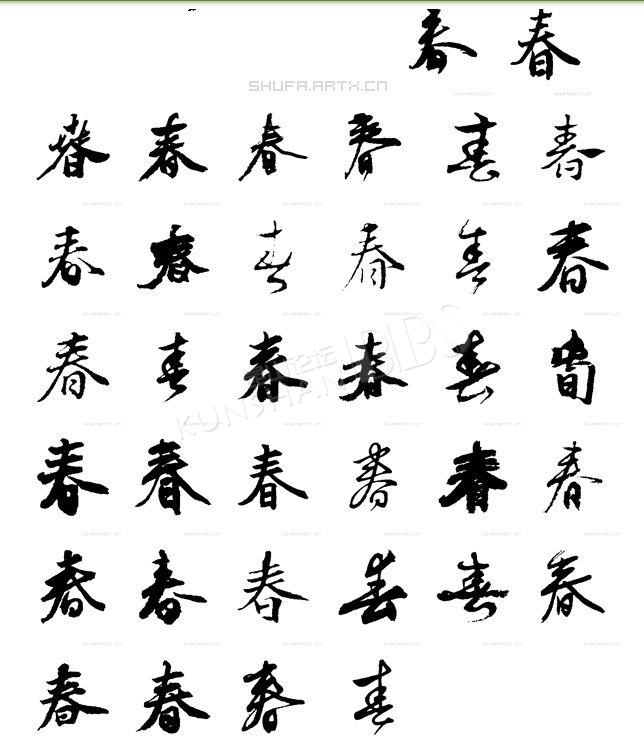 春 春
SHUFA.ARTX.CN
春 春 春 春 春 春
春 春 春 春 春 春
春 春 春 春 春 春
春 春 春 春 春 春
春 春 春 春 春 春
春 春 春 春
论坛 BBS
KUNSHAN